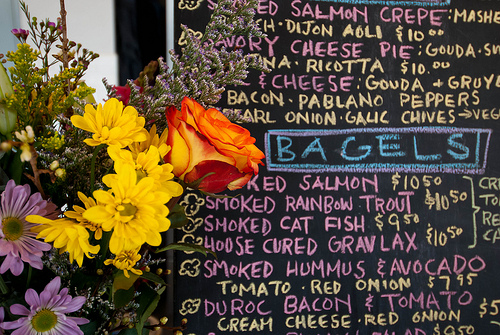 ED SALMON CREPE: MASHE
CH · DIJON AOLI $10.00
AVORY CHEESE PIE: GOUDA · SU
NA · RICOTTA $10.00
& CHEESE: GOUDA + GRUY
BACON · PABLANO PEPPERS
EARL ONION · GALIC CHIVES → VEG
BAGELS
KED SALMON $10.50
SMOKED RAINBOW TROUT $10.50
SMOKED CAT FISH $9.50
HOUSE CURED GRAVLAX $10.50
SMOKED HUMMUS & AVOCADO
TOMATO · RED ONION $7.95
DUROC BACON & TOMATO $
CREAM CHEESE · RED ONION
SMOKED